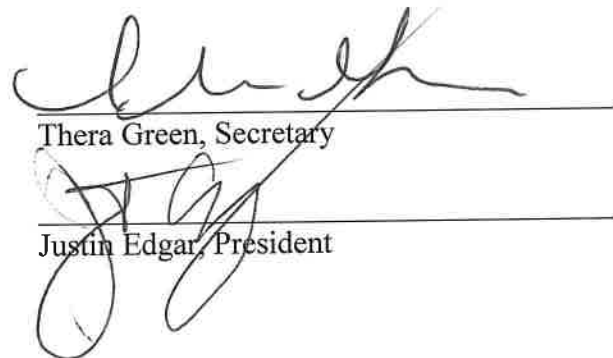 Thera Green, Secretary
Justin Edgar, President